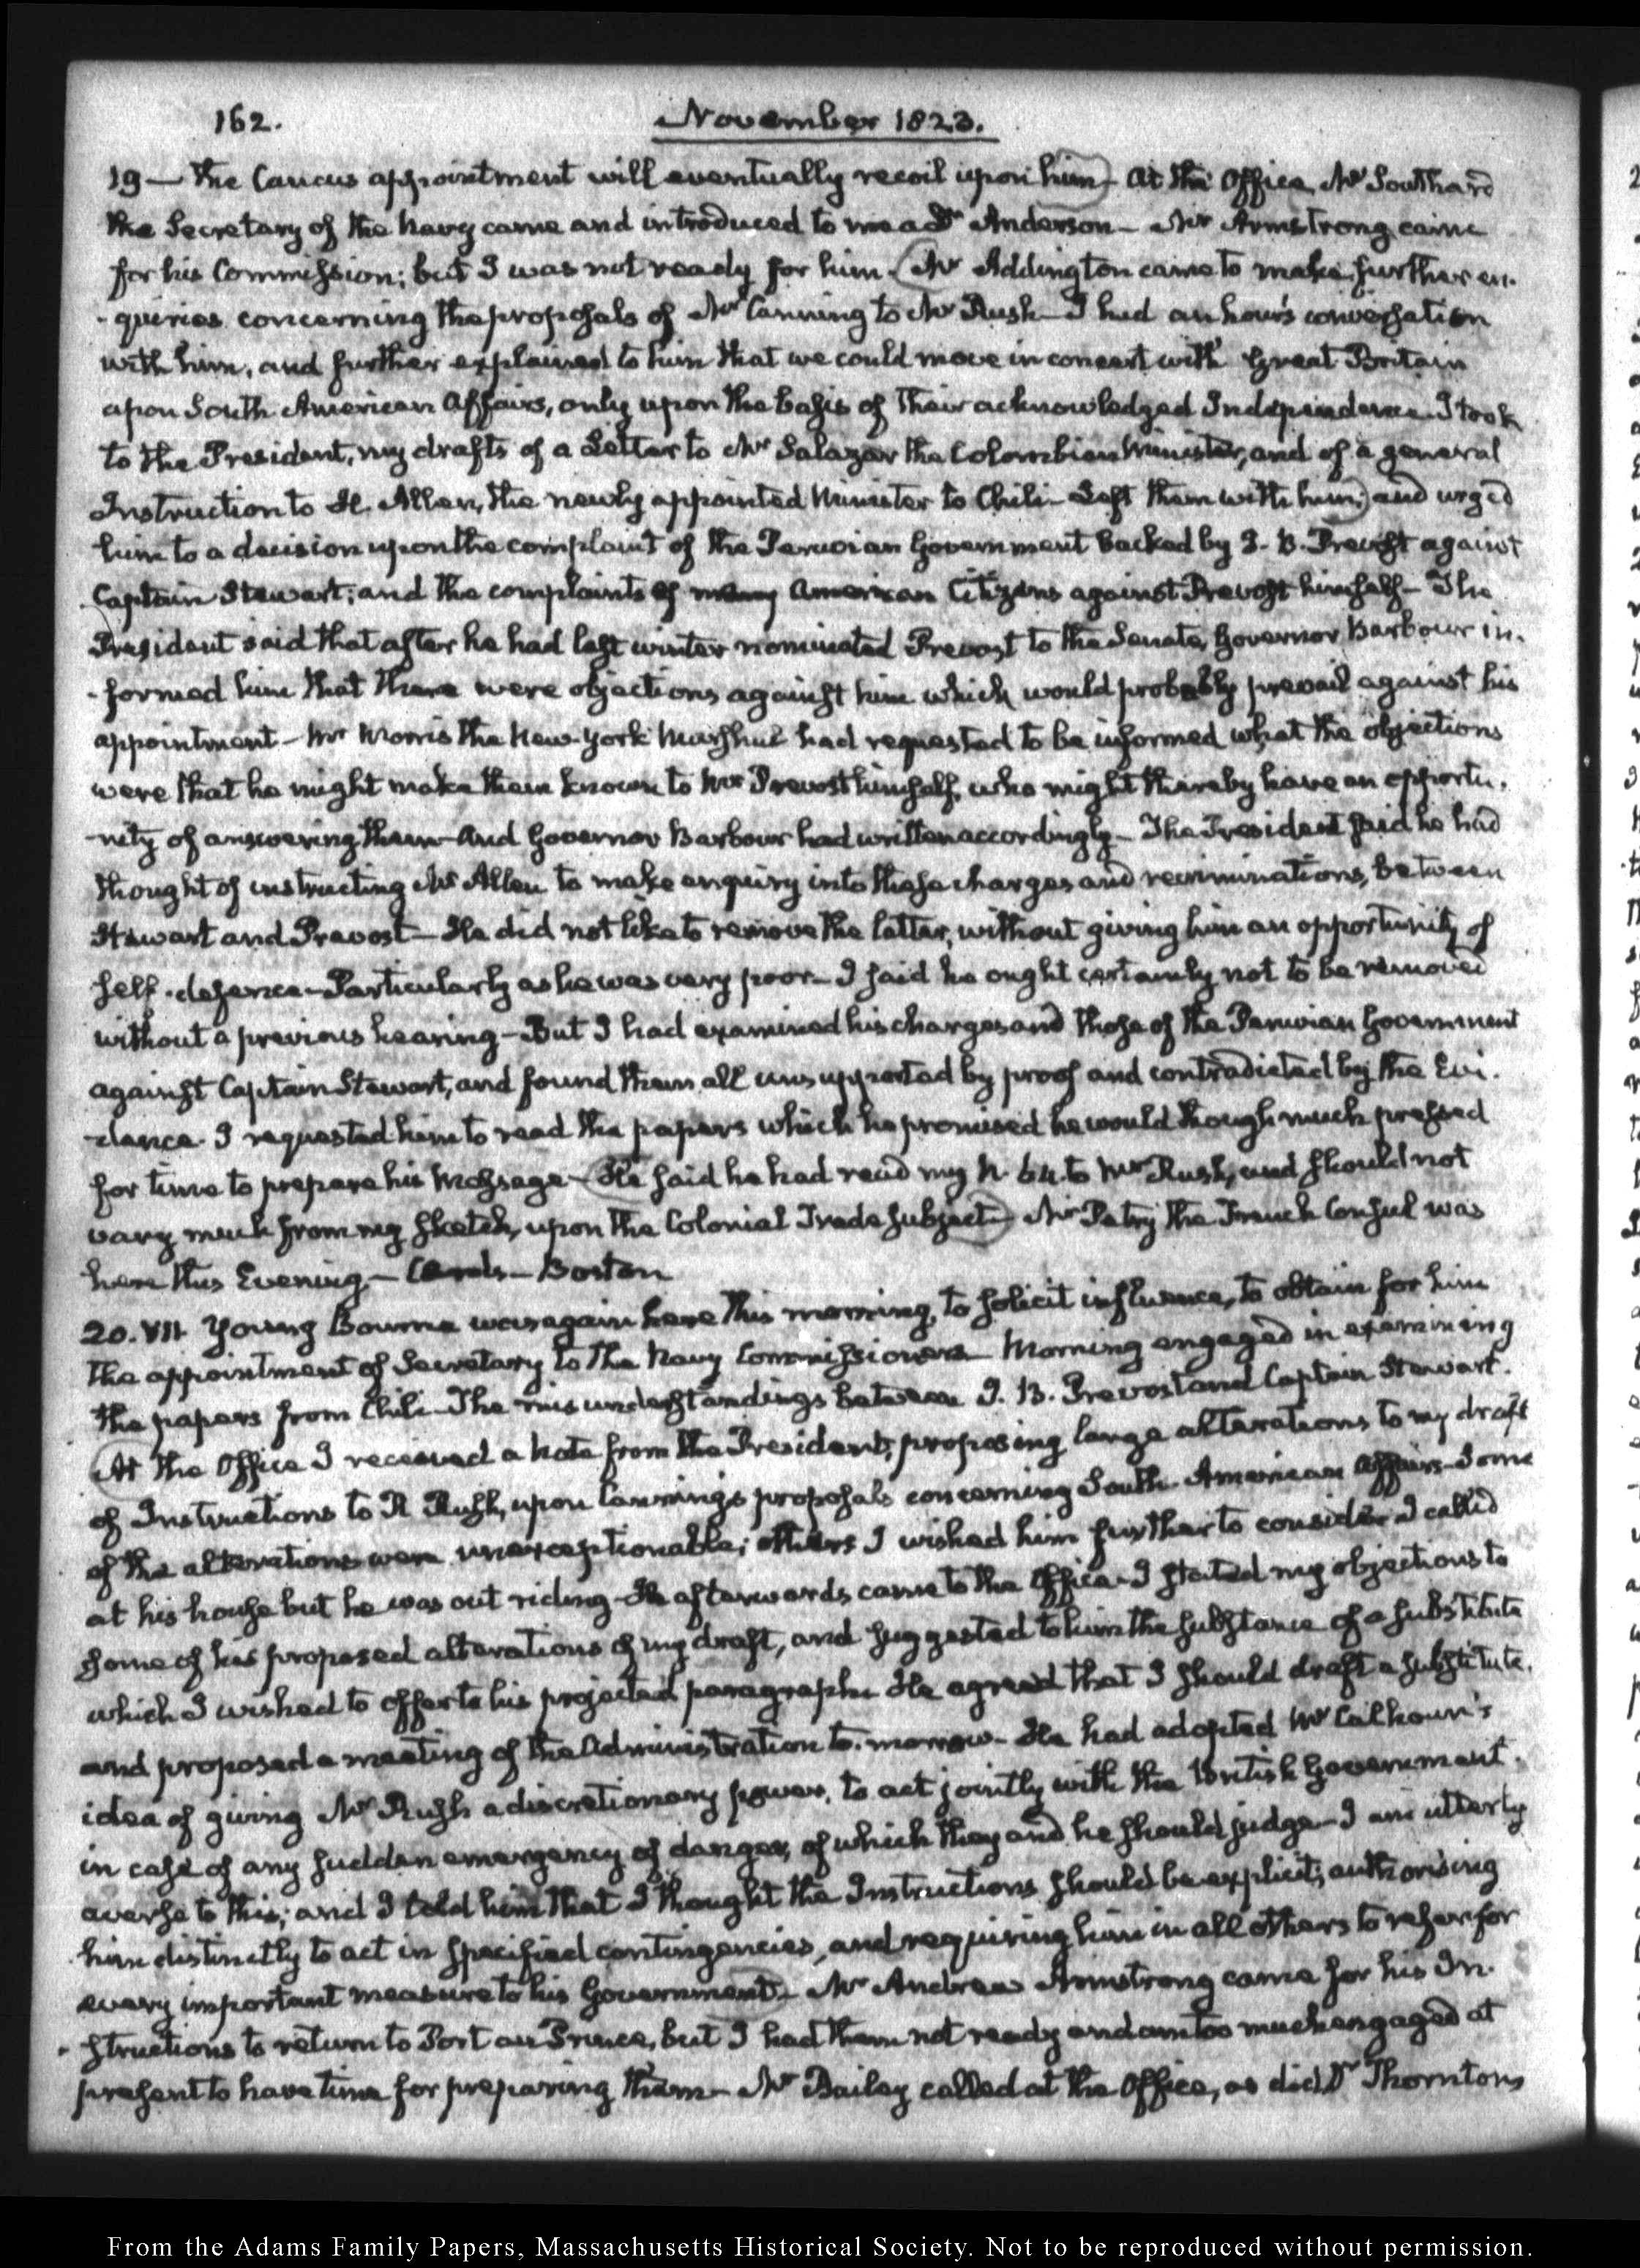 162.
November 1823.
19— The Caucus appointment will eventually recoil upon him) At the Office, Mr Southard
the Secretary of the Navy came and introduced to me a Dr Anderson— Mr Armstrong came
for his Commission; but I was not ready for him. (Mr Addington came to make further en-
-quiries concerning the proposals of Mr Canning to Mr Rush— I had an hour's conversation
with him, and further explained to him that we could move in concert with Great Britain
upon South American Affairs, only upon the basis of their acknowledged Independence. I took
to the President, my drafts of a Letter to Mr Salazar the Colombian Minister, and of a general
Instruction to H. Allen, the newly appointed Minister to Chili— Left them with him;) and urged
him to a decision upon the complaint of the Peruvian Government backed by J. B. Prevost against
Captain Stewart; and the complaints of many American Citizens against Prevost himself— The
President said that after he had last winter nominated Prevost to the Senate, Governor Barbour in-
-formed him that there were objections against him which would probably prevail against his
appointment— Mr Morris the New-York Marshal had requested to be informed what the objections
were that he might make them known to Mr Prevost himself, who might thereby have an opportu-
-nity of answering them— And Governor Barbour had written accordingly— The President said he had
thought of instructing Mr Allen to make enquiry into these charges and recriminations, between
Stewart and Prevost— He did not like to remove the latter, without giving him an opportunity of
self-defence— Particularly as he was very poor— I said he ought certainly not to be removed
without a previous hearing— But I had examined his charges and those of the Peruvian Government
against Captain Stewart, and found them all unsupported by proof and contradicted by the Evi-
-dence. I requested him to read the papers which he promised he would though much pressed
for time to prepare his Message— (He said he had read my N. 64. to Mr Rush, and should not
vary much from my sketch, upon the Colonial Trade subject—) Mr Petry the French Consul was
here this Evening— Cards— Boston
20. VII. Young Bourne was again here this morning, to solicit influence, to obtain for him
the appointment of Secretary to the Navy Commissioners— Morning engaged in examining
the papers from Chili— The misunderstandings between J. B. Prevost and Captain Stewart.
(At the Office I received a Note from the President, proposing large alterations to my draft
of Instructions to R Rush, upon Canning's proposals concerning South-American affairs— Some
of the alterations were unexceptionable; others I wished him further to consider— I called
at his house but he was out riding— He afterwards came to the Office— I stated my objections to
some of his proposed alterations of my draft, and suggested to him the substance of a substitute
which I wished to offer to his projected paragraphs. He agreed that I should draft a substitute,
and proposed a meeting of the Administration to-morrow— He had adopted Mr Calhoun's
idea of giving Mr Rush a discretionary power, to act jointly with the British Government
in case of any sudden emergency of danger, of which they and he should judge— I am utterly
averse to this; and I told him that I thought the Instructions should be explicit; authorising
him distinctly to act in specified contingencies, and requiring him in all others to refer for
every important measure to his Government)— Mr Andrew Armstrong came for his In-
-structions to return to Port au Prince, but I had them not ready and am too much engaged at
present to have time for preparing them— Mr Bailey called at the Office, as did Dr Thornton,
From the Adams Family Papers, Massachusetts Historical Society. Not to be reproduced without permission.